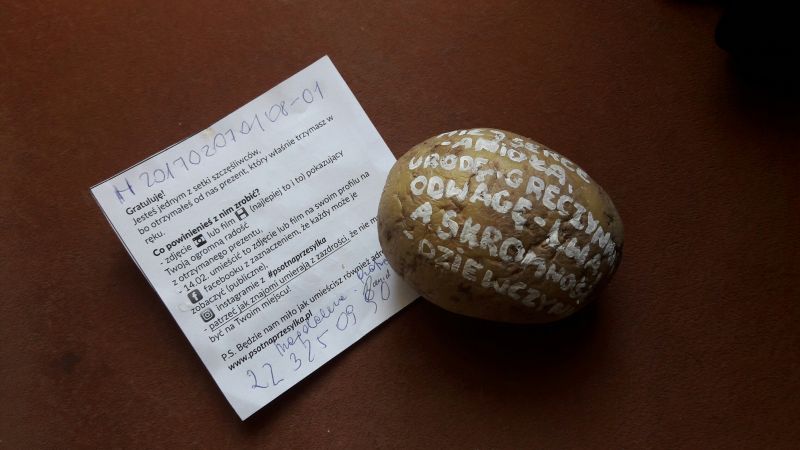 H 201702070108-01
Gratuluję!
Jesteś jednym z setki szczęśliwców,
bo otrzymałeś od nas prezent, który właśnie trzymasz w
ręku.
Co powinieneś z nim zrobić?
- zdjęcie lub film (najlepiej to i to) pokazujący
Twoją ogromną radość
z otrzymanego prezentu,
- 14.02. umieścić to zdjęcie lub film na swoim profilu na
facebooku z zaznaczeniem, że każdy może je
zobaczyć (publiczne),
instagramie z #psotnaprzesylka
- patrzeć jak znajomi umierają z zazdrości, że nie
być na Twoim miejscu!
P.S. Będzie nam miło jak umieścisz również
www.psotnaprzesylka.pl
Magdalena
22 325 09 90
SERCE
-ANIOŁA,
URODĘ-GRECZYNKI
ODWAGĘ-LWA,
A SKROMNOŚĆ
DZIEWCZYN